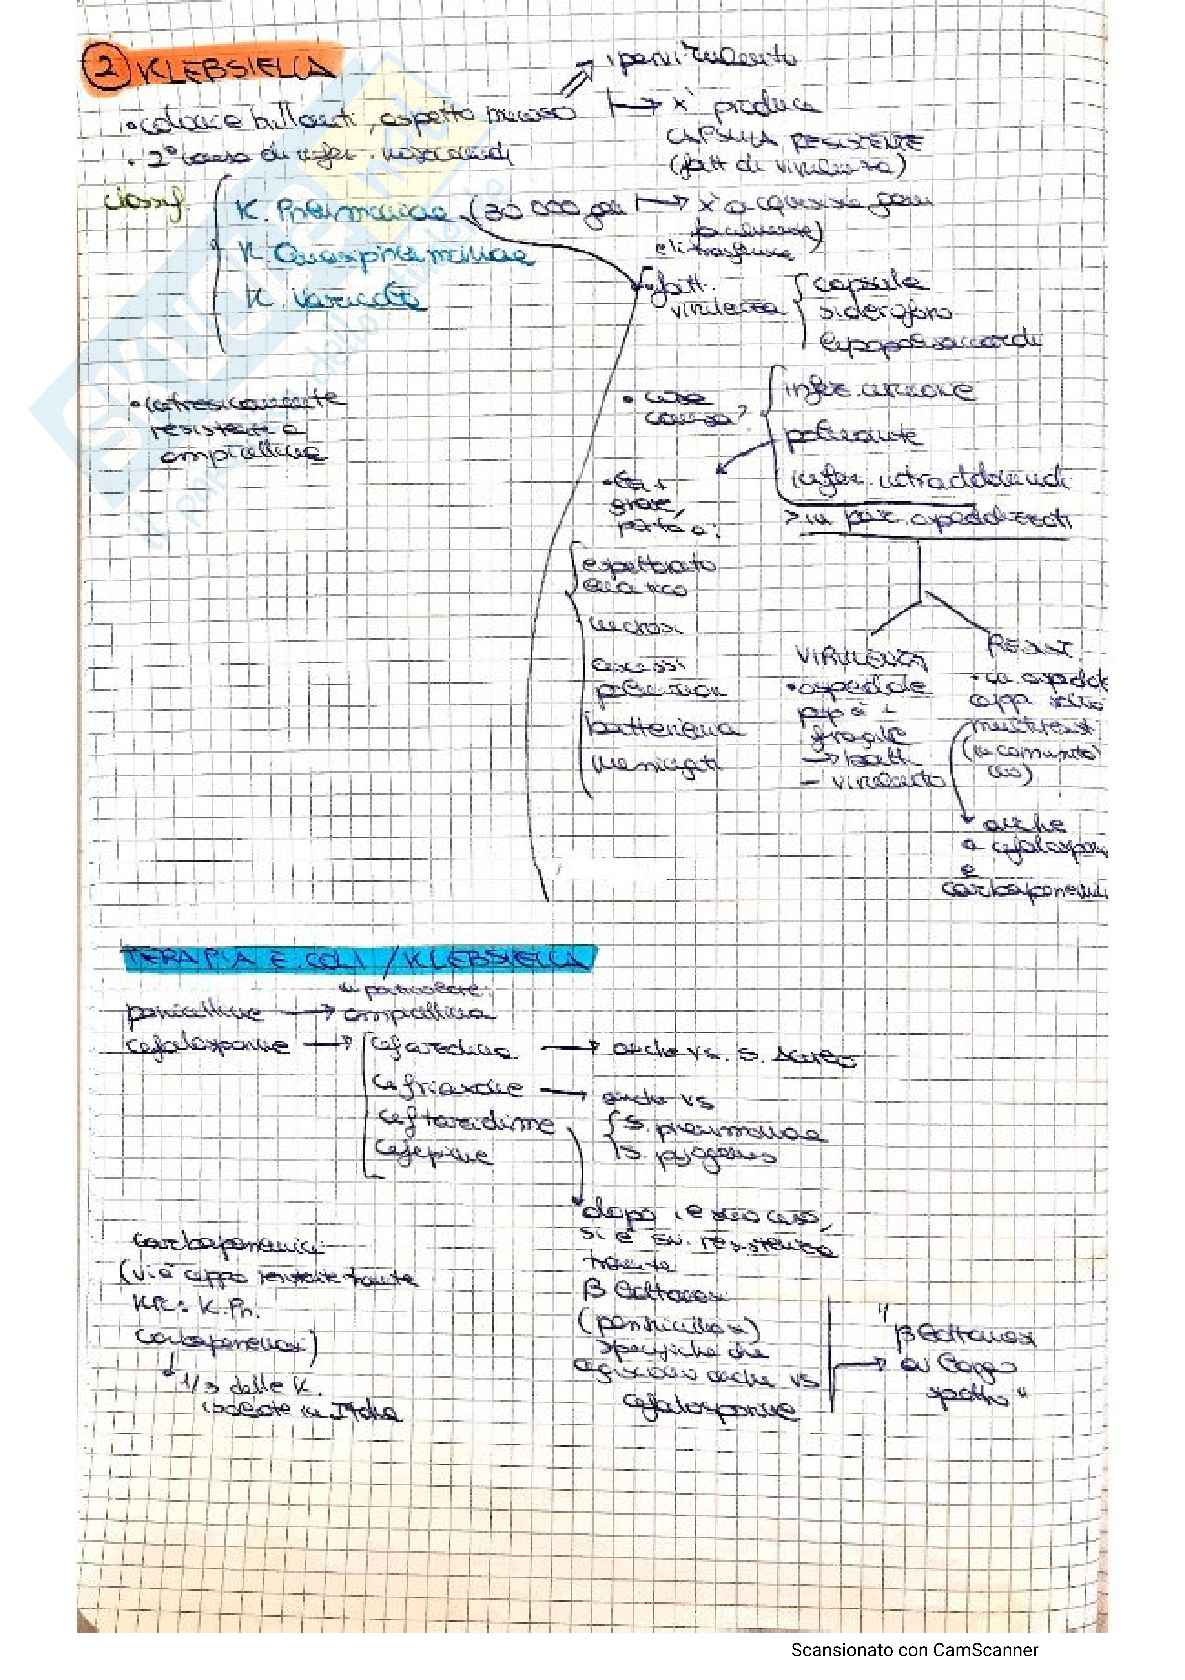 2 KLEBSIELLA
ipervirulento
• colonie brillanti, aspetto mucoso
→ x' produce
CAPSULA RESISTENTE
(fatt di virulenza)
• 2° causa di infez. nosocomiali
classif.
K. Pneumoniae (30 000 geni → x' acquisisce geni
facilmente)
e li trasferisce
K. Quasipneumoniae
K. Variicola
fatt.
virulenza
capsula
sideroforo
lipopolisaccaridi
• intrinsecamente
resistenti a
ampicillina
• cosa
causa?
infez. urinarie
polmonite
infez. intraddominali
> in paz. ospedalizzati
• la +
grave,
porta a:
espettorato
ematico
necrosi
ascessi
polmonari
batteriemia
meningiti
VIRULENZA
• ospedale
pop si +
fragile
→ batt
- virulento
RESIST.
• in ospedale
ceppi
multiresist
(in comunità
no)
anche
a cefalosporine
e
carbapenemi
TERAPIA E. COLI / KLEBSIELLA
in particolare:
penicilline → ampicillina
cefalosporine →
cefazolina → anche vs. S. Aureus
cefriaxone → anche vs
S. pneumoniae
S. pyogenes
ceftazidime
cefepime
dopo il suo uso,
si è sv. resistenza
tramite
β lattamasi
(penicillinasi)
specifiche che
agiscono anche vs
cefalosporine
→ "β lattamasi
a largo
spettro"
carbapenemici
(vi è ceppo resistente tramite
KPC: K. Pn.
carbapenemasi)
↓ 1/3 delle K.
isolate in Italia
Scansionato con CamScanner